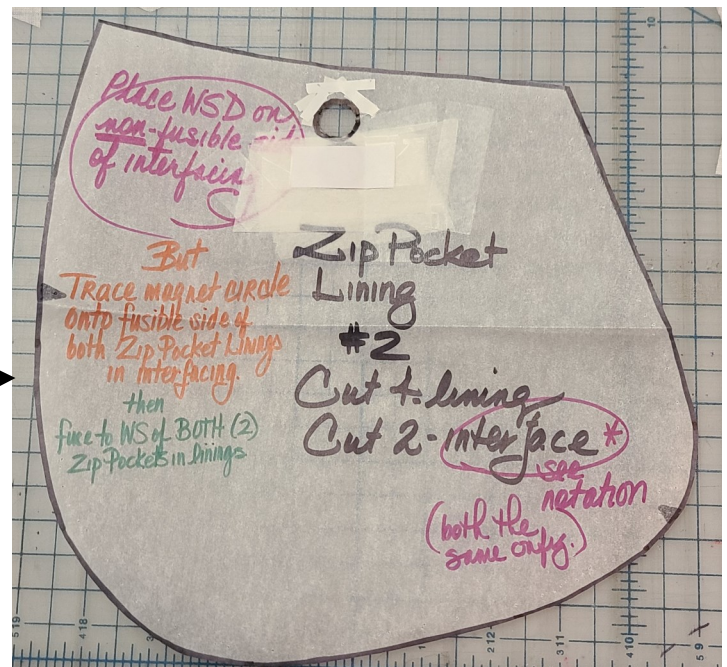 Place WSD on
non-fusible side
of interfacing
But
Trace magnet circle
onto fusible side of
both Zip Pocket Linings
in interfacing.
then
fuse to WS of BOTH (2)
Zip Pockets in linings
Zip Pocket
Lining
#2
Cut 1-lining
Cut 2-interface*
see
notation
(both the
same only.)
10
5 19
4 18
3
2 12
3 11
4 10
5 9